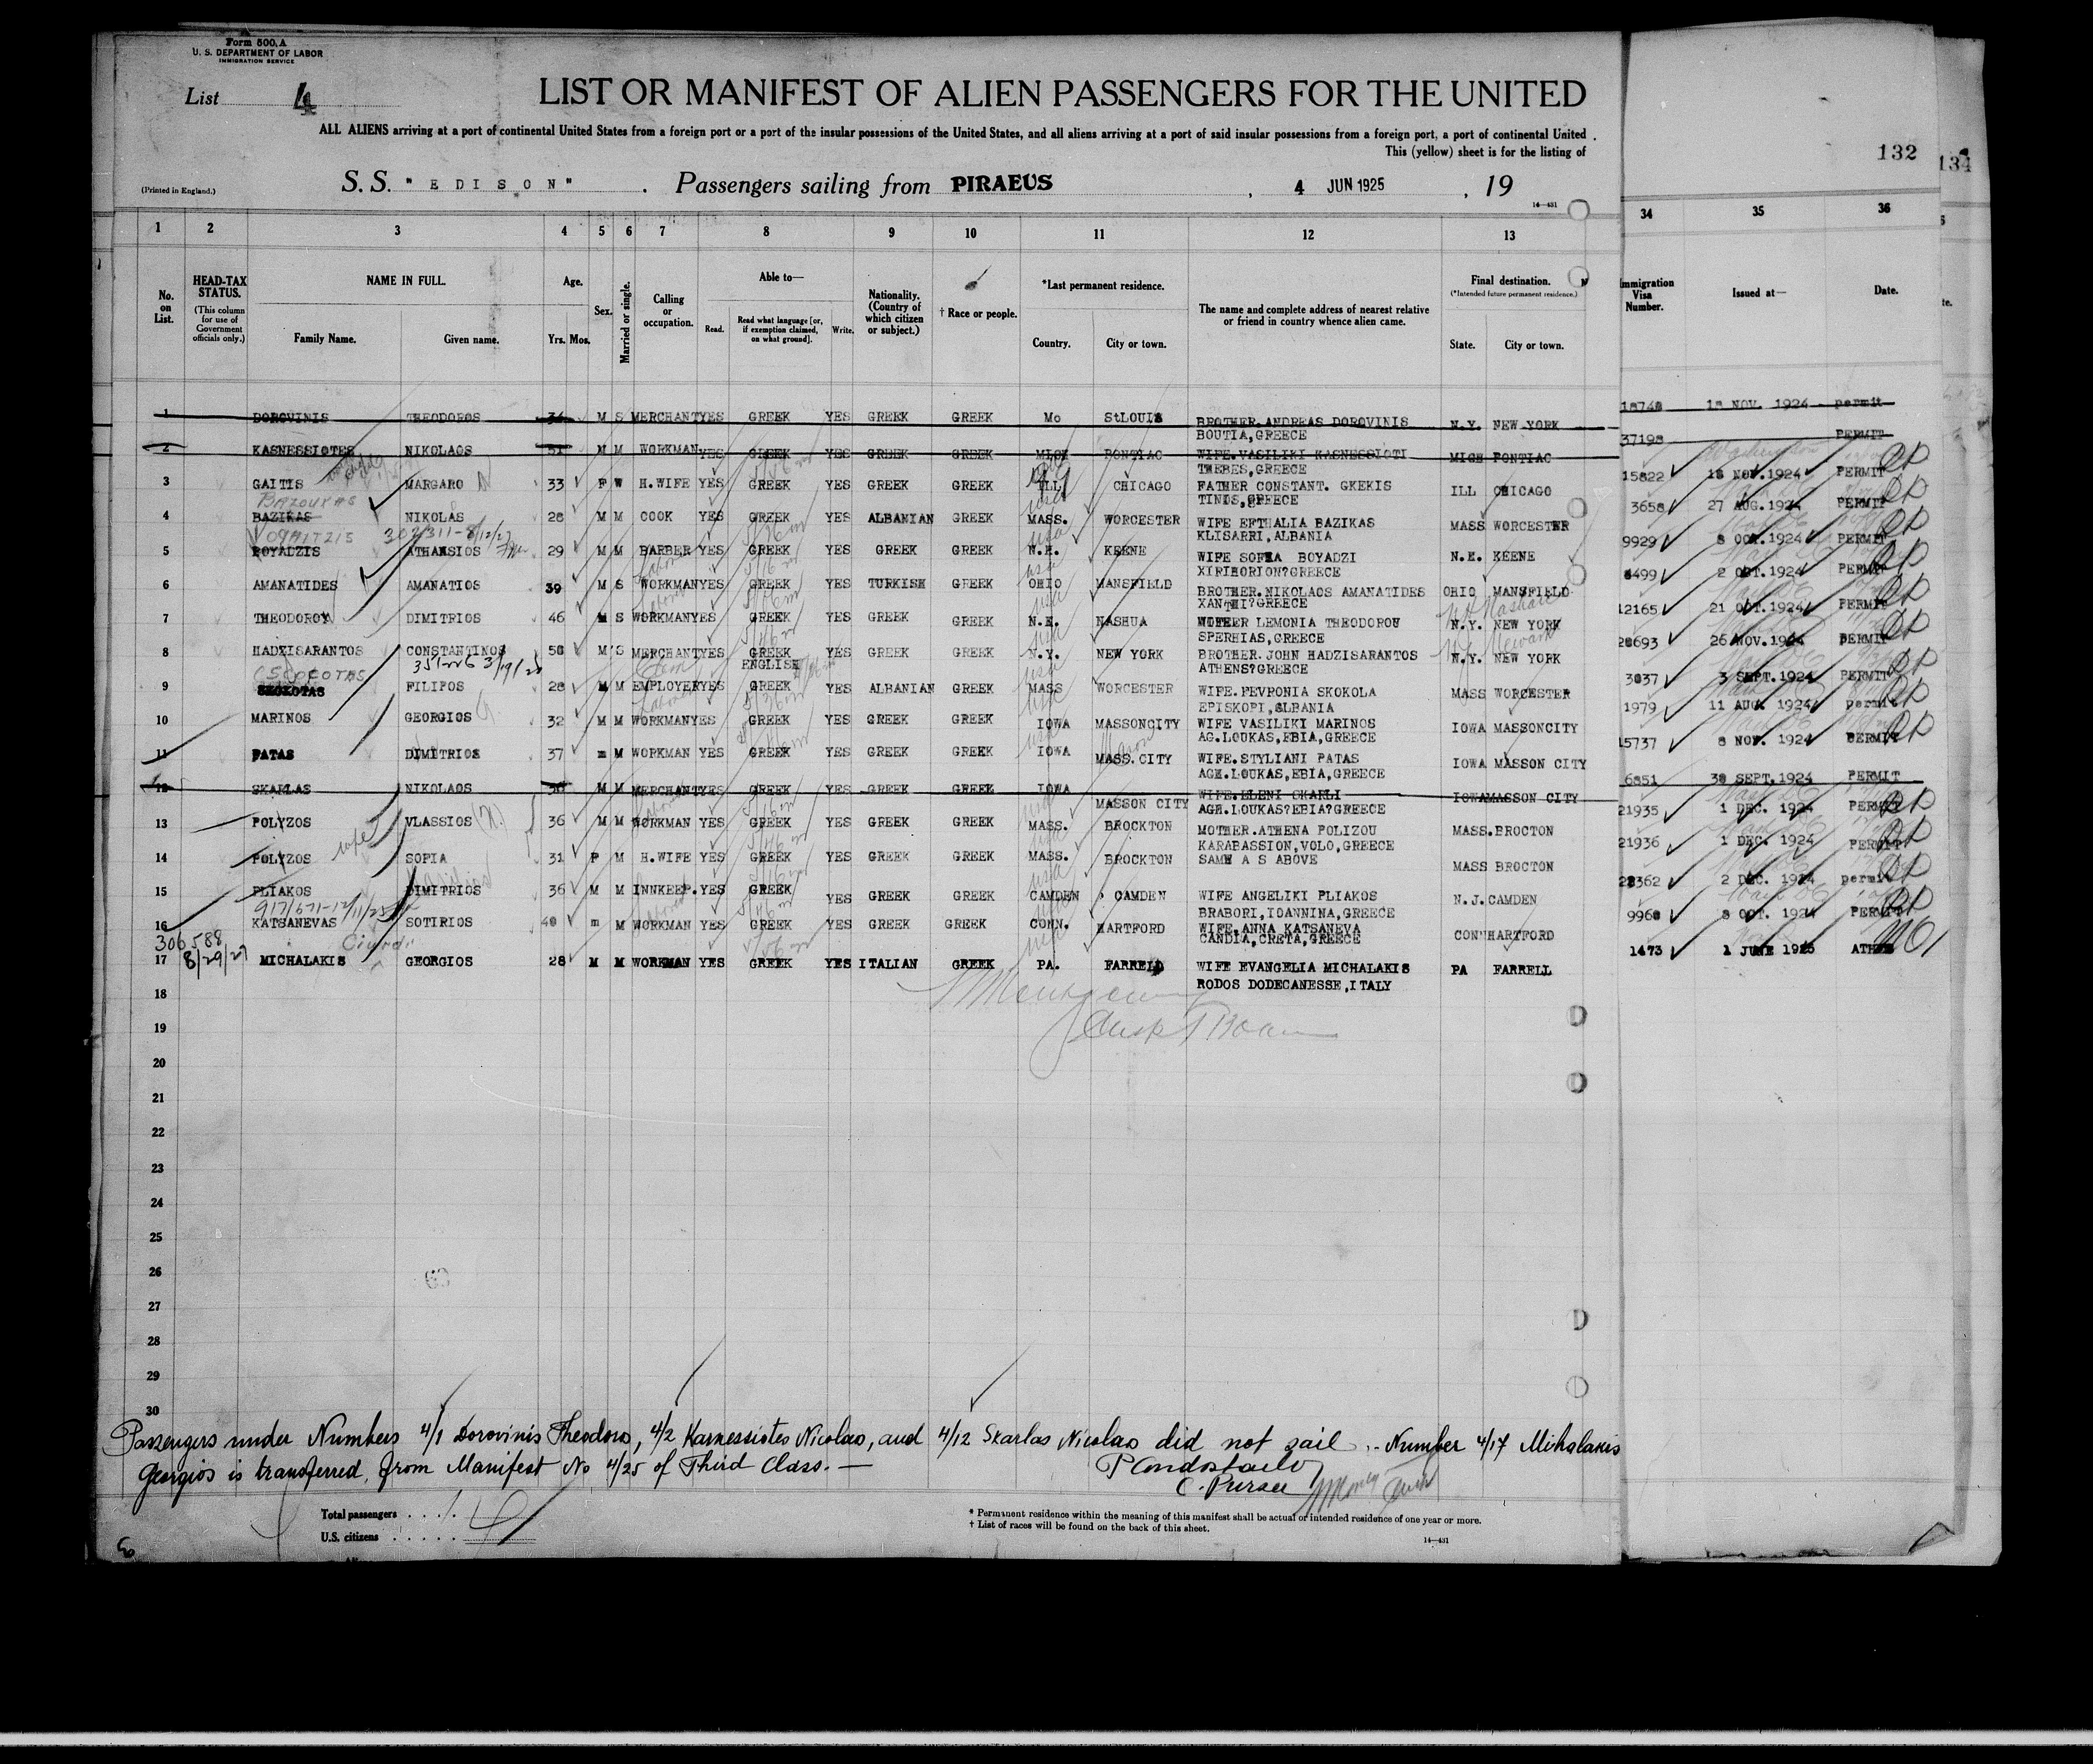 Form 500.A
U. S. DEPARTMENT OF LABOR
IMMIGRATION SERVICE
List 4
LIST OR MANIFEST OF ALIEN PASSENGERS FOR THE UNITED
ALL ALIENS arriving at a port of continental United States from a foreign port or a port of the insular possessions of the United States, and all aliens arriving at a port of said insular possessions from a foreign port, a port of continental United
This (yellow) sheet is for the listing of
132
134
(Printed in England.)
S. S. "EDISON" . Passengers sailing from PIRAEUS , 4 JUN 1925 , 19
14-431
1 2 3 4 5 6 7 8 9 10 11 12 13 34 35 36
No. on List.
HEAD-TAX STATUS.
(This column for use of Government officials only.)
NAME IN FULL.
Family Name. Given name.
Age.
Yrs. Mos.
Sex.
Married or single.
Calling or occupation.
Able to—
Read. Read what language [or, if exemption claimed, on what ground]. Write.
Nationality. (Country of which citizen or subject.)
† Race or people.
*Last permanent residence.
Country. City or town.
The name and complete address of nearest relative or friend in country whence alien came.
Final destination.
(*Intended future permanent residence.)
State. City or town.
Immigration Visa Number.
Issued at—
Date.
1 DOROVINIS THEODOROS 34 M S MERCHANT YES GREEK YES GREEK GREEK Mo StLOUIS BROTHER.ANDREAS DOROVINIS N.Y. NEW YORK 18 NOV. 1924 permit
BOUTIA,GREECE
2 KASNESSIOTES NIKOLAOS 51 M M WORKMAN YES GREEK YES GREEK GREEK MICH PONTIAC WIFE.VASILIKI KASNESSIOTI MICH PONTIAC 37198 PERMIT
THEBES,GREECE
3 GAITIS MARGARO 33 F W H.WIFE YES GREEK YES GREEK GREEK ILL CHICAGO FATHER CONSTANT. GKEKIS ILL CHICAGO 15822 18 NOV.1924 PERMIT
TINOS,GREECE
BAZOUKAS
4 BAZIKAS NIKOLAS 28 M M COOK YES GREEK YES ALBANIAN GREEK MASS. WORCESTER WIFE EFTHALIA BAZIKAS MASS WORCESTER 3658 27 AUG.1924 PERMIT
KLISARRI,ALBANIA
302311-8/12/27
5 BOYADZIS ATHANSIOS 29 M M BARBER YES GREEK YES GREEK GREEK N.H. KEENE WIFE SOFIA BOYADZI N.H. KEENE 9929 8 OCT.1924 PERMIT
XIFIHORION?GREECE
6 AMANATIDES AMANATIOS 39 M S WORKMAN YES GREEK YES TURKISH GREEK OHIO MANSFIELD BROTHER.NIKOLAOS AMANATIDES OHIO MANSFIELD 8499 2 OCT.1924 PERMIT
XANTHI?GREECE
Nashua
7 THEODOROY DIMITRIOS 46 M S WORKMAN YES GREEK YES GREEK GREEK N.H. NASHUA MOTHER LEMONIA THEODOROU N.Y. NEW YORK 12165 21 OCT.1924 PERMIT
SPERHIAS,GREECE
Newark
8 HADZISARANTOS CONSTANTINOS 50 M S MERCHANT YES GREEK YES GREEK GREEK N.Y. NEW YORK BROTHER.JOHN HADZISARANTOS N.Y. NEW YORK 28693 26 NOV.1924 PERMIT
ENGLISH ATHENS?GREECE
9 SKOKOTAS FILIPOS 28 M M EMPLOYER YES GREEK YES ALBANIAN GREEK MASS WORCESTER WIFE.FEVRONIA SKOKOLA MASS WORCESTER 3037 3 SEPT.1924 PERMIT
EPISKOPI,SLBANIA
10 MARINOS GEORGIOS 32 M M WORKMAN YES GREEK YES GREEK GREEK IOWA MASSONCITY WIFE VASILIKI MARINOS IOWA MASSONCITY 1979 11 AUG. 1924 permit
AG.LOUKAS,EBIA,GREECE
11 PATAS DIMITRIOS 37 m M WORKMAN YES GREEK YES GREEK GREEK IOWA MASS.CITY WIFE.STYLIANI PATAS IOWA MASSON CITY 15737 8 NOV. 1924 PERMIT
AGH.LOUKAS,EBIA,GREECE
12 SKARLAS NIKOLAOS M M MERCHANT YES GREEK YES GREEK GREEK IOWA MASSON CITY WIFE.ELENI SKARLI IOWA MASSON CITY 6851 30 SEPT.1924 PERMIT
AGH.LOUKAS?EBIA?GREECE
13 POLYZOS VLASSIOS 36 M M WORKMAN YES GREEK YES GREEK GREEK MASS. BROCKTON MOTHER.ATHENA POLIZOU MASS.BROCTON 21935 1 DEC. 1924 PERMIT
KARABASSION,VOLO,GREECE
wife
14 POLYZOS SOFIA 31 F M H.WIFE YES GREEK YES GREEK GREEK MASS. BROCKTON SAME A S ABOVE MASS BROCTON 21936 1 DEC. 1924 PERMIT
15 PLIAKOS DIMITRIOS 36 M M INNKEEP. YES GREEK YES GREEK GREEK CAMDEN CAMDEN WIFE ANGELIKI PLIAKOS N.J.CAMDEN 22362 2 DEC. 1924 permit
BRABORI,IOANNINA,GREECE
16 KATSANEVAS SOTIRIOS 40 m M WORKMAN YES GREEK YES GREEK GREEK CONN. HARTFORD WIFE.ANNA KATSANEVA CONN HARTFORD 9968 8 OCT. 1924 PERMIT
CANDIA,CRETA,GREECE
306588
8/29/27
17 MICHALAKIS GEORGIOS 28 M M WORKMAN YES GREEK YES ITALIAN GREEK PA. FARRELL WIFE EVANGELIA MICHALAKIS PA FARRELL 1473 1 JUNE 1925 ATHENS
RODOS DODECANESSE,ITALY
18
19
20
21
22
23
24
25
26
27
28
29
30
Passengers under Numbers 4/1 Dorovinis Theodoro, 4/2 Karnessiotes Nicolao, and 4/12 Skarlas Nicolas did not sail .- Number 4/17 Mihalakis
Georgios is transferred from Manifest No 4/25 of Third Class.—
C. Purser
Total passengers
U.S. citizens
* Permanent residence within the meaning of this manifest shall be actual or intended residence of one year or more.
† List of races will be found on the back of this sheet.
14-431